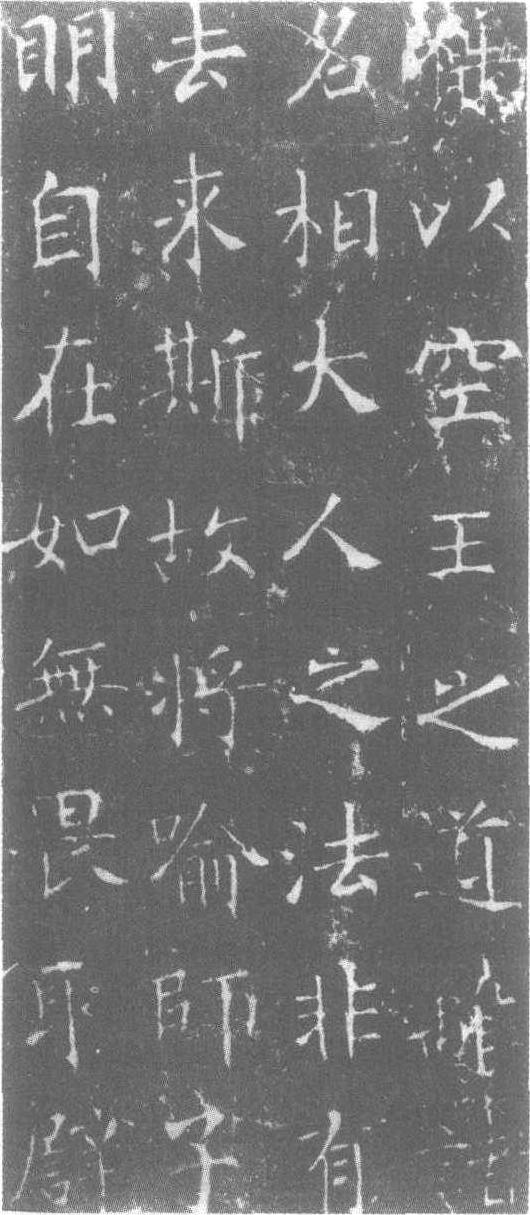 以空王之道離諸
名相大人之法非有
去来斯故將喻師子
明自在如無畏取譬